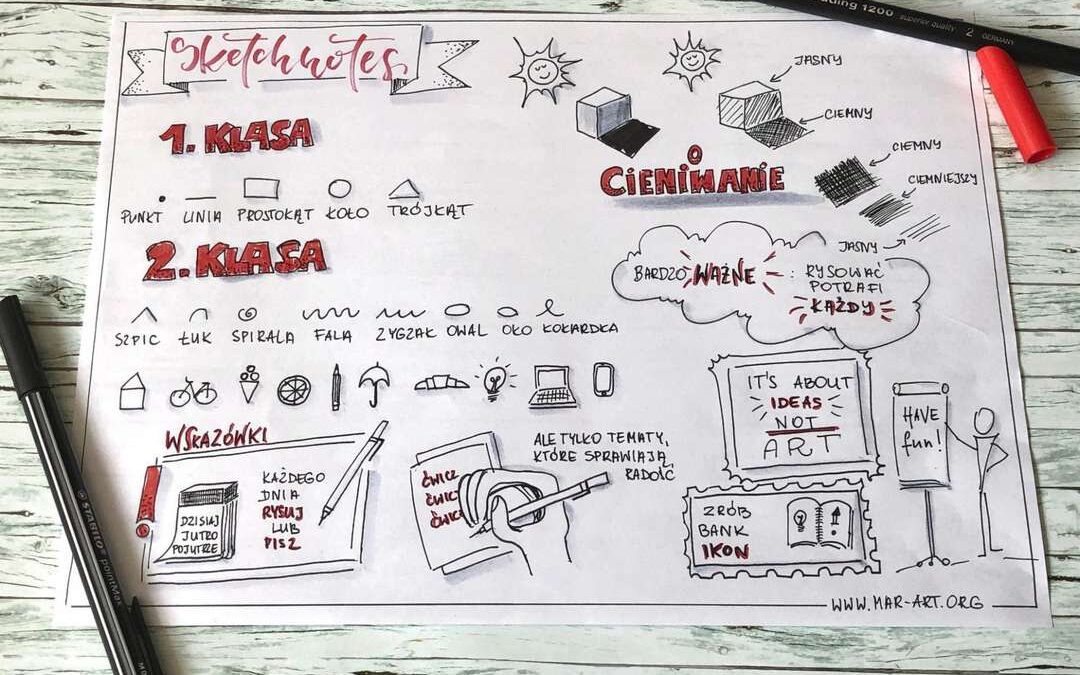 Sketchnotes
1. KLASA
PUNKT LINIA PROSTOKĄT KOŁO TRÓJKĄT
2. KLASA
SZPIC ŁUK SPIRALA FALA ZYGZAK OWAL OKO KOKARDKA
WSKAZÓWKI
!
DZISIAJ
JUTRO
POJUTRZE
KAŻDEGO
DNIA
RYSUJ
LUB
PISZ
ĆWICZ
ĆWICZ
ĆWICZ
ALE TYLKO TEMATY,
KTÓRE SPRAWIAJĄ
RADOŚĆ
JASNY
CIEMNY
O
CIENIWANIE
CIEMNY
CIEMNIEJSZY
JASNY
BARDZO WAŻNE : RYSOWAĆ
POTRAFI
KAŻDY
IT'S ABOUT
IDEAS
NOT
ART
HAVE
fun!
ZRÓB
BANK
IKON
!
WWW.MAR-ART.ORG
1200 superior quality 2 GERMANY
STABILO pointMax